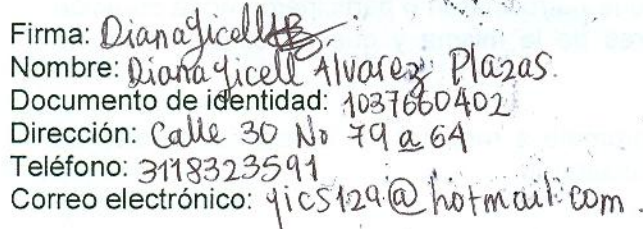 Firma: Diana Yicell AB
Nombre: Diana Yicell Alvarez Plazas.
Documento de identidad: 1037660402
Dirección: Calle 30 No 79 a 64
Teléfono: 3118323591
Correo electrónico: yics129@hotmail.com.